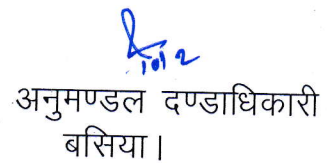 अनुमण्डल दण्डाधिकारी
बसिया।